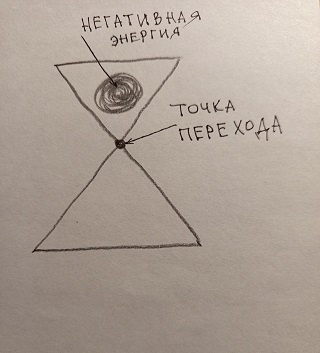 НЕГАТИВНАЯ
ЭНЕРГИЯ
ТОЧКА
ПЕРЕХОДА